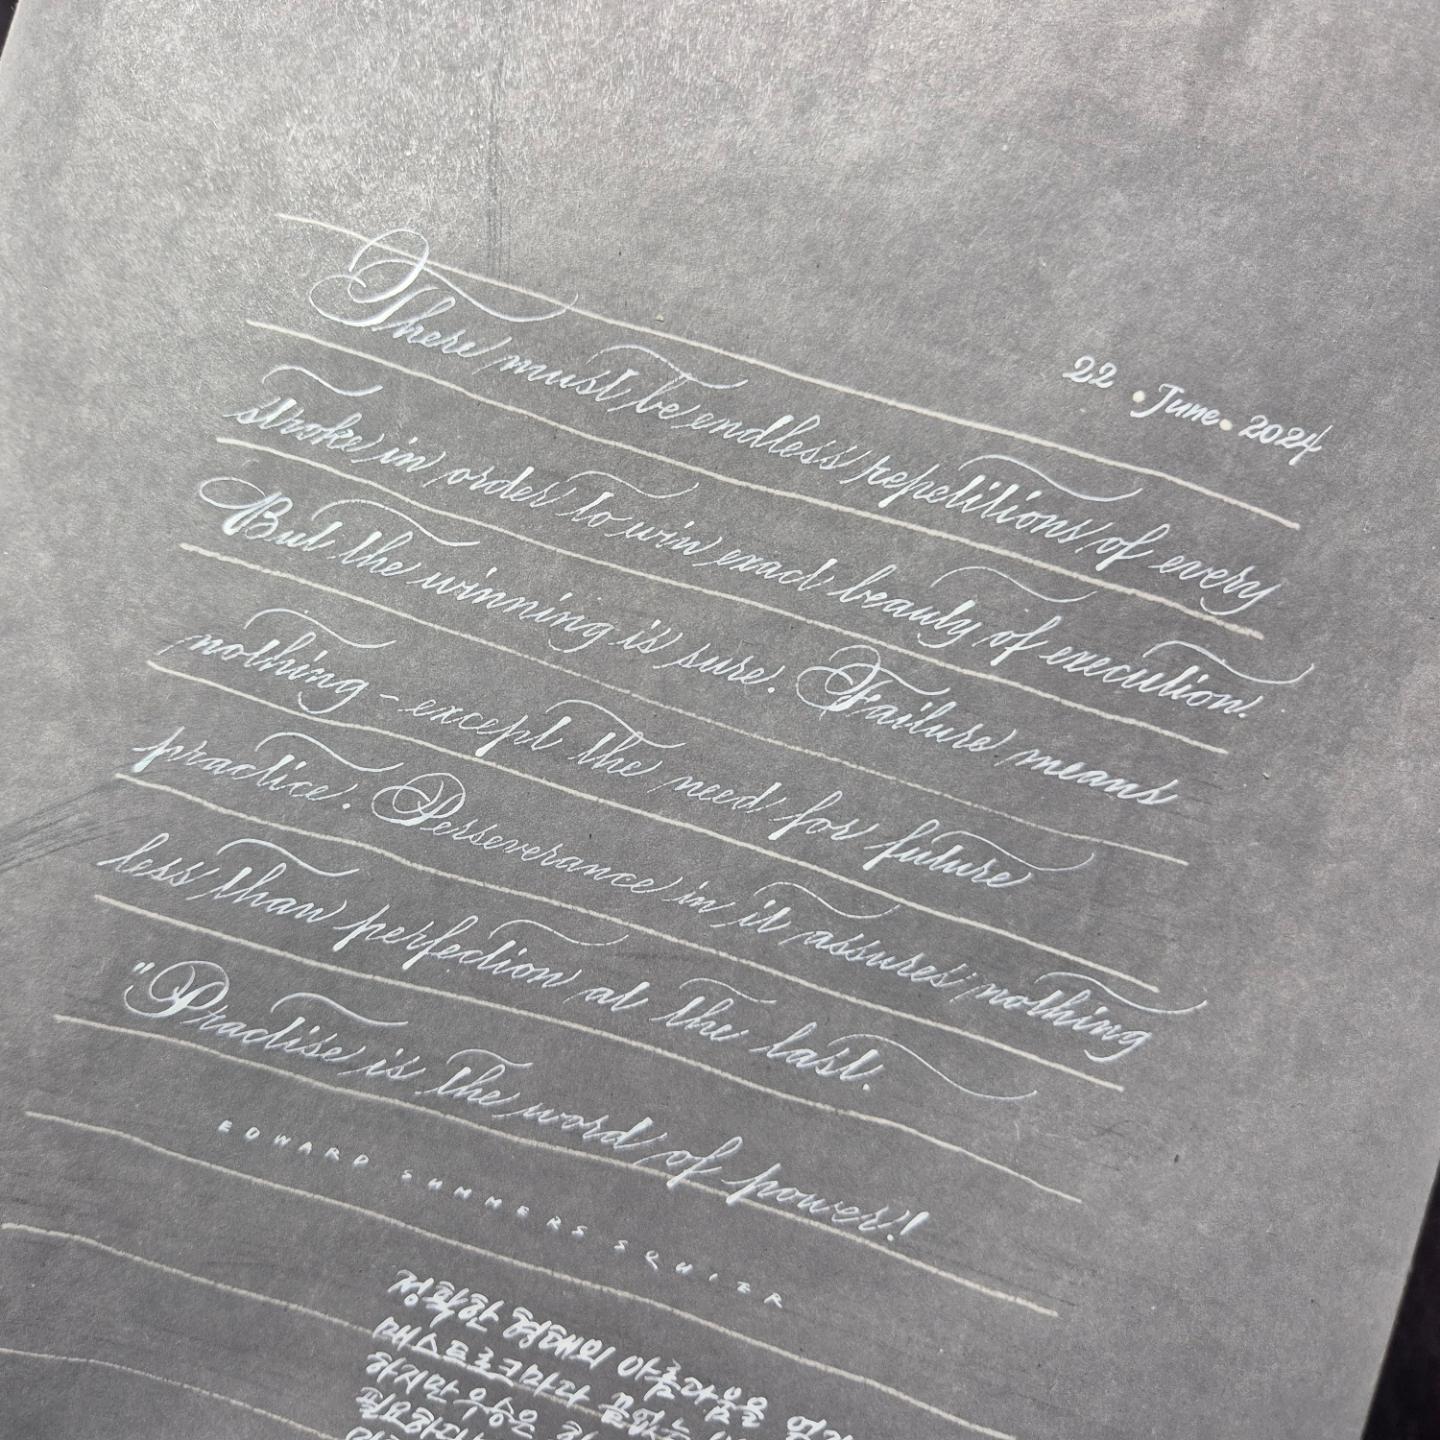 22 . June. 2024
There must be endless repetitions of every
stroke in order to win exact beauty of execution.
But the winning is sure. Failure means
nothing - except the need for future
practice. Perseverance in it assures nothing
less than perfection at the last.
"Practise is the word of power!
EDWARD SUMMERS SQUIER
정확한 형태의 아름다움을
매스트로크마다 끝없는
하지만 우승은
필요하다